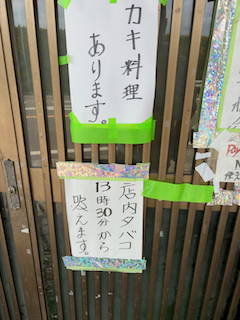 カキ料理
あります。
店内タバコ
13時30分から
吸えます。